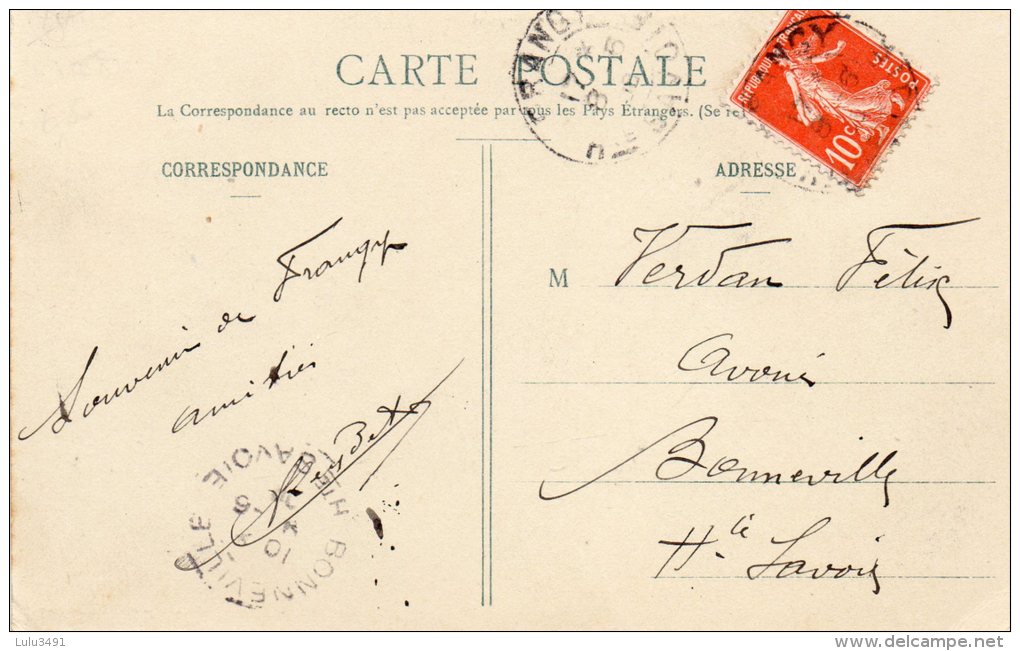 CARTE POSTALE
La Correspondance au recto n'est pas acceptée par tous les Pays Étrangers. (Se re
CORRESPONDANCE
Souvenir de Frangy
amitiés
ADRESSE
M Verdan Félix
Avoué
Bonneville
Hte Savoie
FRANGY
Hte SAVOIE
RÉPUBLIQUE FRANÇAISE
POSTES
10c
FRANGY
BONNEVILLE
Hte SAVOIE
Lulu3491
www.delcampe.net